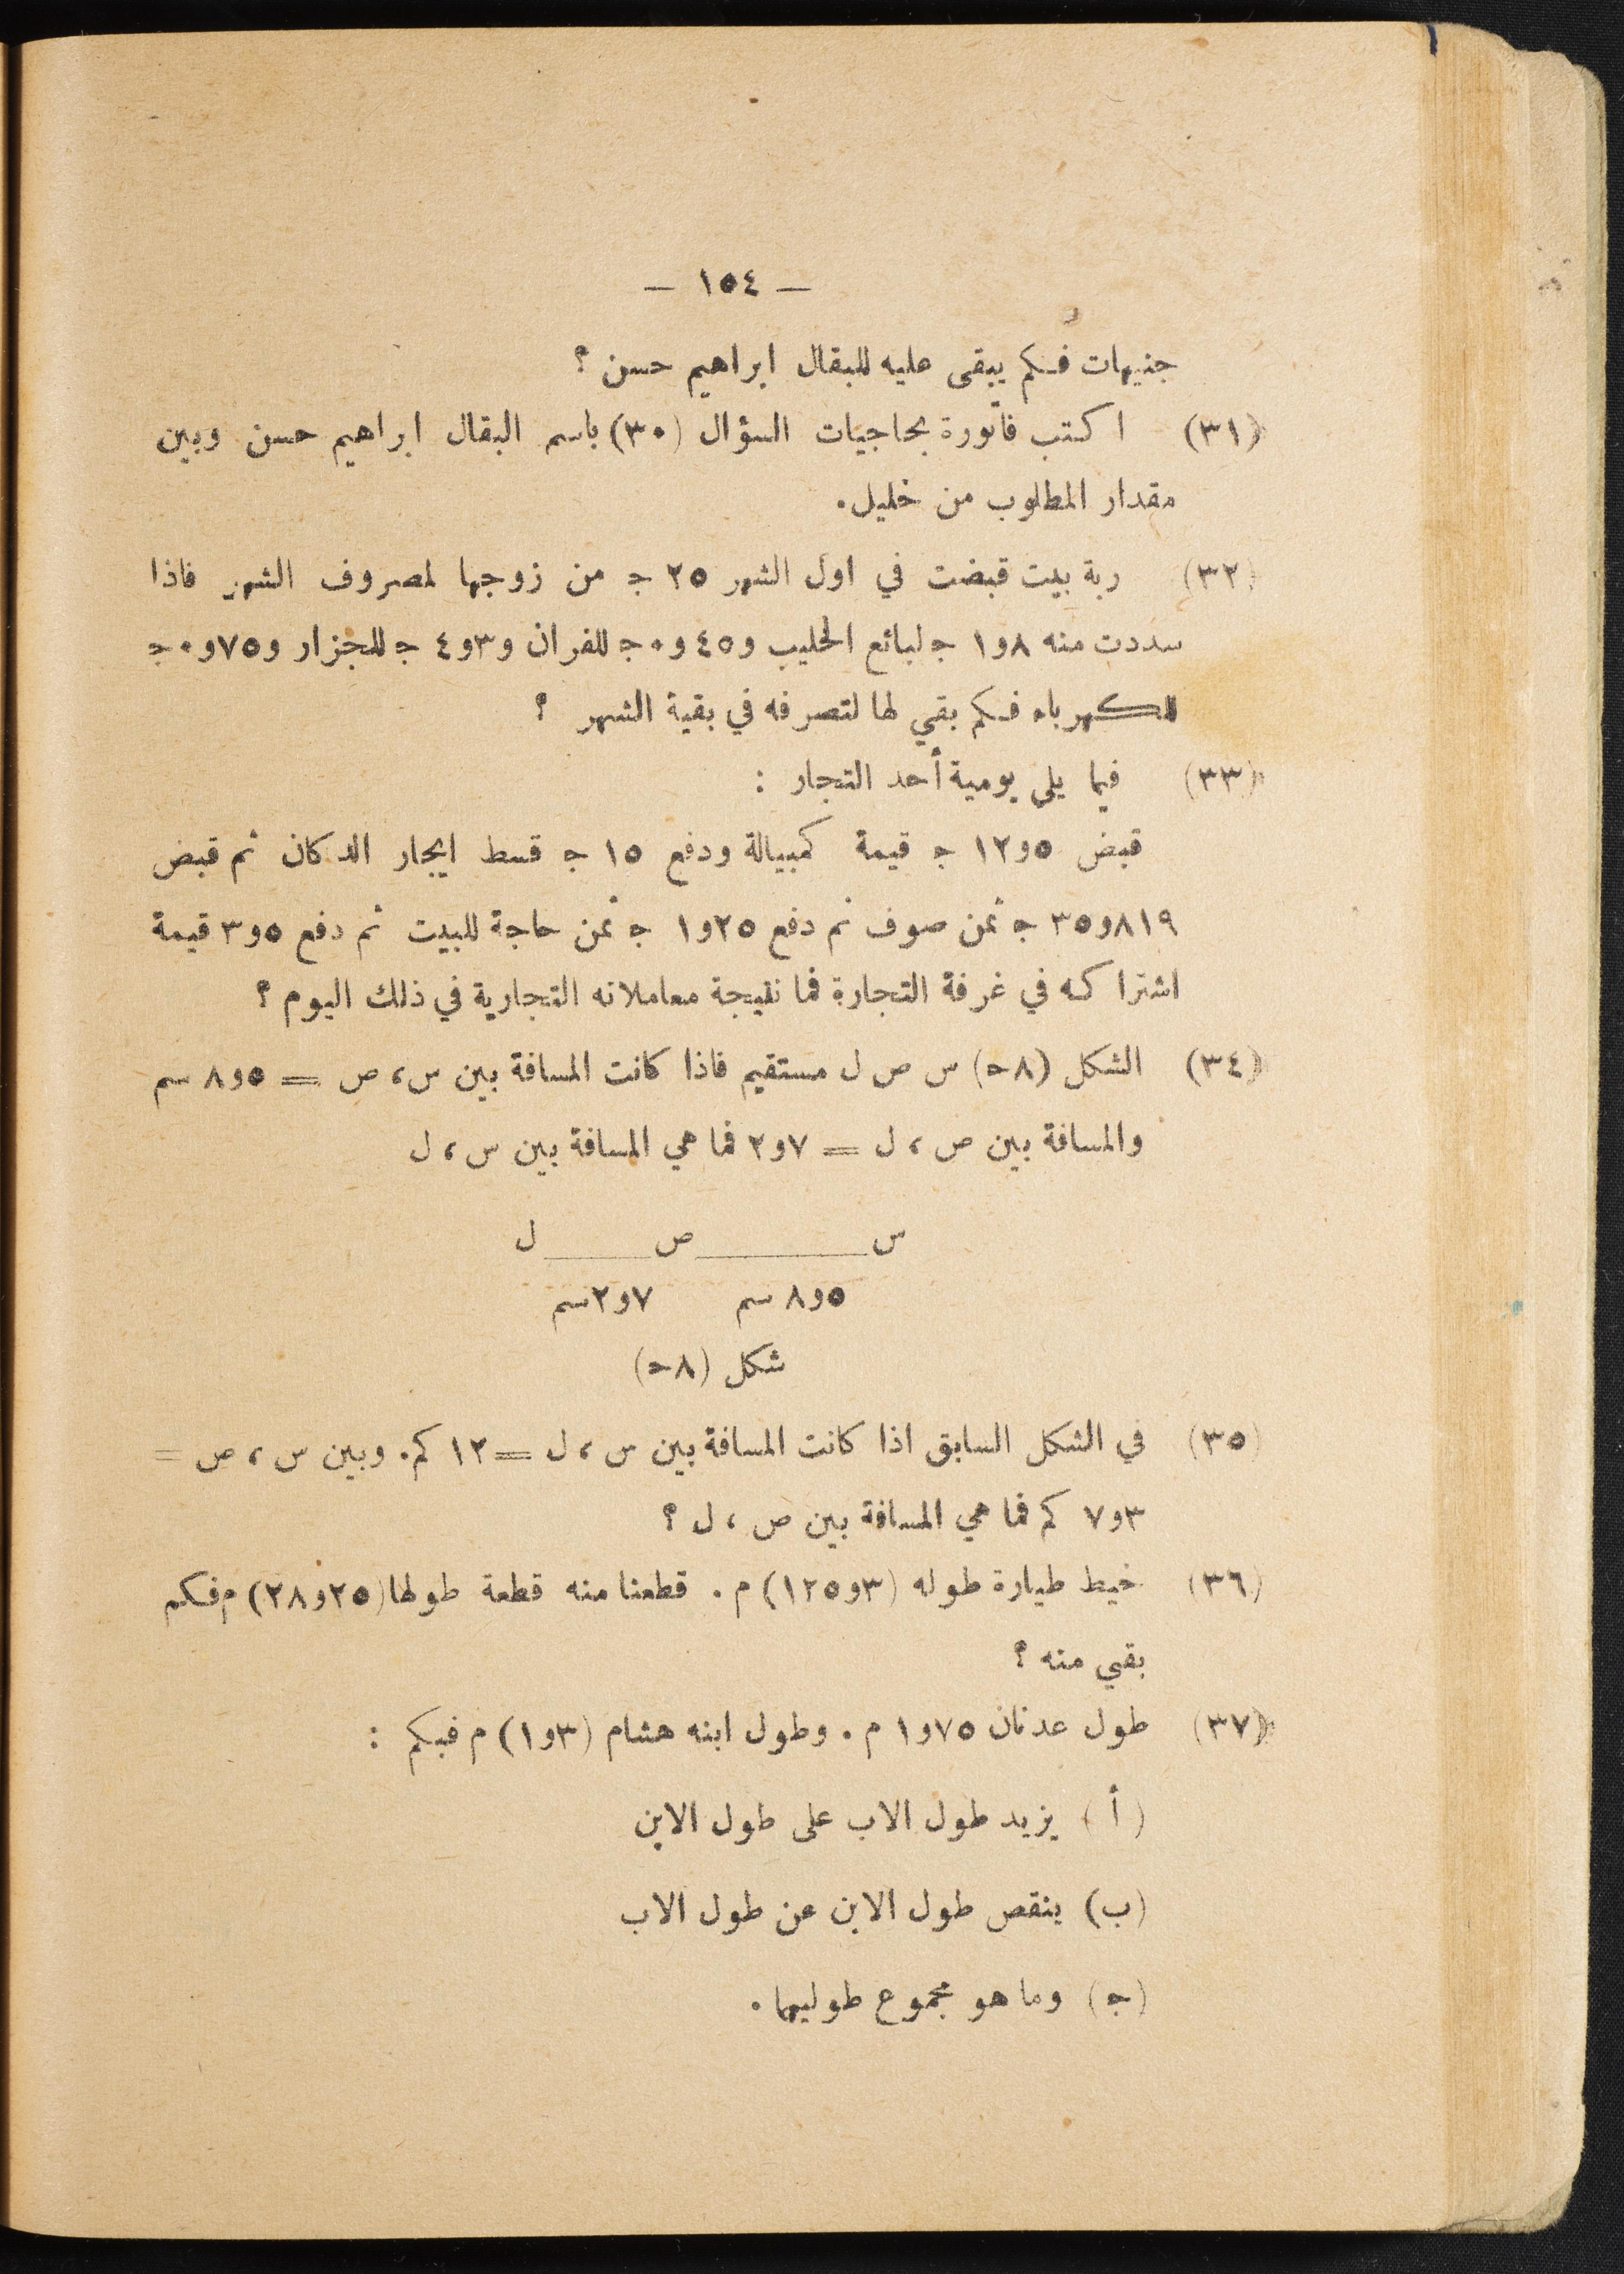 — ١٥٤ —
جنيهات فكم يبقى عليه للبقال ابراهيم حسن ؟
(٣١) اكتب فاتورة بحاجيات السؤال (٣٠) باسم البقال ابراهيم حسن وبين
مقدار المطلوب من خليل.
(٣٢) ربة بيت قبضت في اول الشهر ٢٥ ج من زوجها لمصروف الشهر فاذا
سددت منه ٨و١ ج لبائع الحليب و٤٥و٠ ج للفران و٣و٤ ج للجزار و٧٥و٠ ج
للكهرباء فكم بقي لها لتصرفه في بقية الشهر ؟
(٣٣) فيما يلي يومية أحد التجار :
قبض ٥و١٢ ج قيمة كمبيالة ودفع ١٥ ج قسط ايجار الدكان ثم قبض
٨١٩و٣٥ ج ثمن صوف ثم دفع ٢٥و١ ج ثمن حاجة للبيت ثم دفع ٥و٣ قيمة
اشتراكه في غرفة التجارة فما نتيجة معاملاته التجارية في ذلك اليوم ؟
(٣٤) الشكل (٨ح) س ص ل مستقيم فاذا كانت المسافة بين س، ص = ٥و٨ سم
والمسافة بين ص ، ل = ٧و٢ فما هي المسافة بين س ، ل
س ______ ص ____ ل
٥و٨ سم ٧و٢سم
شكل (٨ح)
(٣٥) في الشكل السابق اذا كانت المسافة بين س ، ل = ١٢ كم. وبين س ، ص =
٣و٧ كم فما هي المسافة بين ص ، ل ؟
(٣٦) خيط طيارة طوله (٣و١٢٥) م . قطعنا منه قطعة طولها (٢٥و٢٨) م فكم
بقي منه ؟
(٣٧) طول عدنان ٧٥و١ م . وطول ابنه هشام (٣و١) م فبكم :
(أ) يزيد طول الاب على طول الابن
(ب) ينقص طول الابن عن طول الاب
(ج) وما هو مجموع طوليهما .